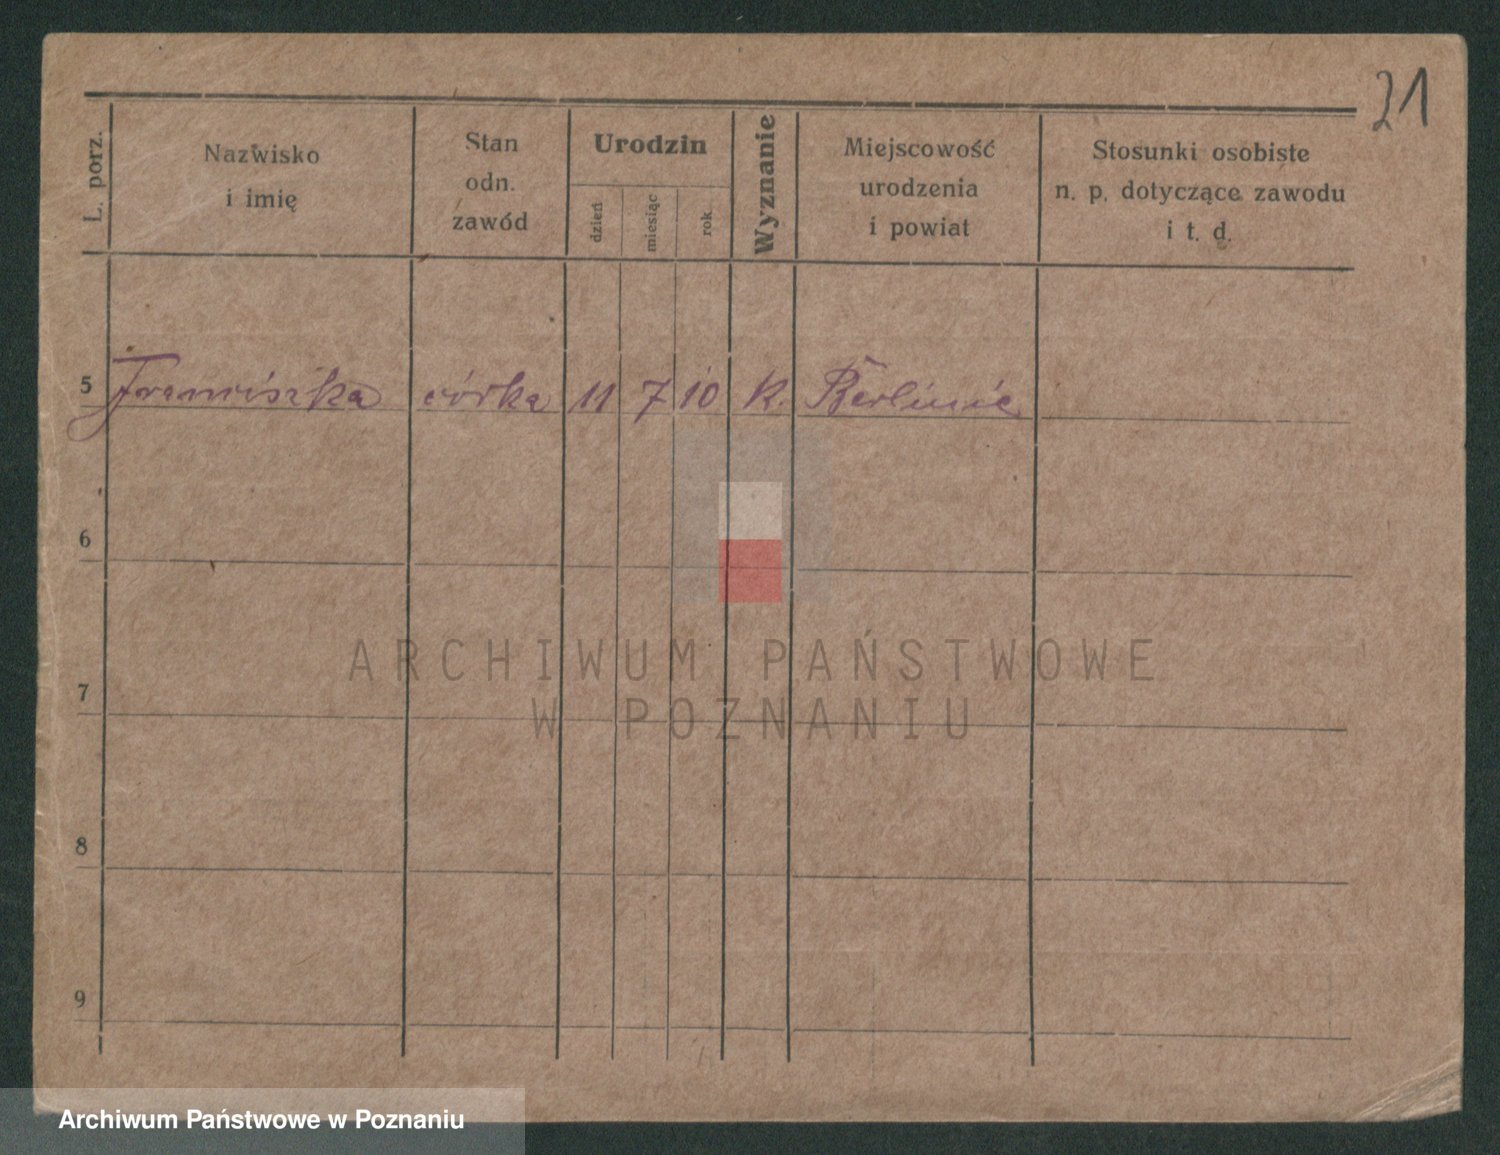 21
L. porz.
Nazwisko
i imię
Stan
odn.
zawód
Urodzin
dzień
miesiąc
rok
Wyznanie
Miejscowość
urodzenia
i powiat
Stosunki osobiste
n. p. dotyczące zawodu
i t. d.
5 Franciszka córka 11 7 10 K. Berlinie
6
7
8
9
ARCHIWUM PAŃSTWOWE
W POZNANIU
Archiwum Państwowe w Poznaniu